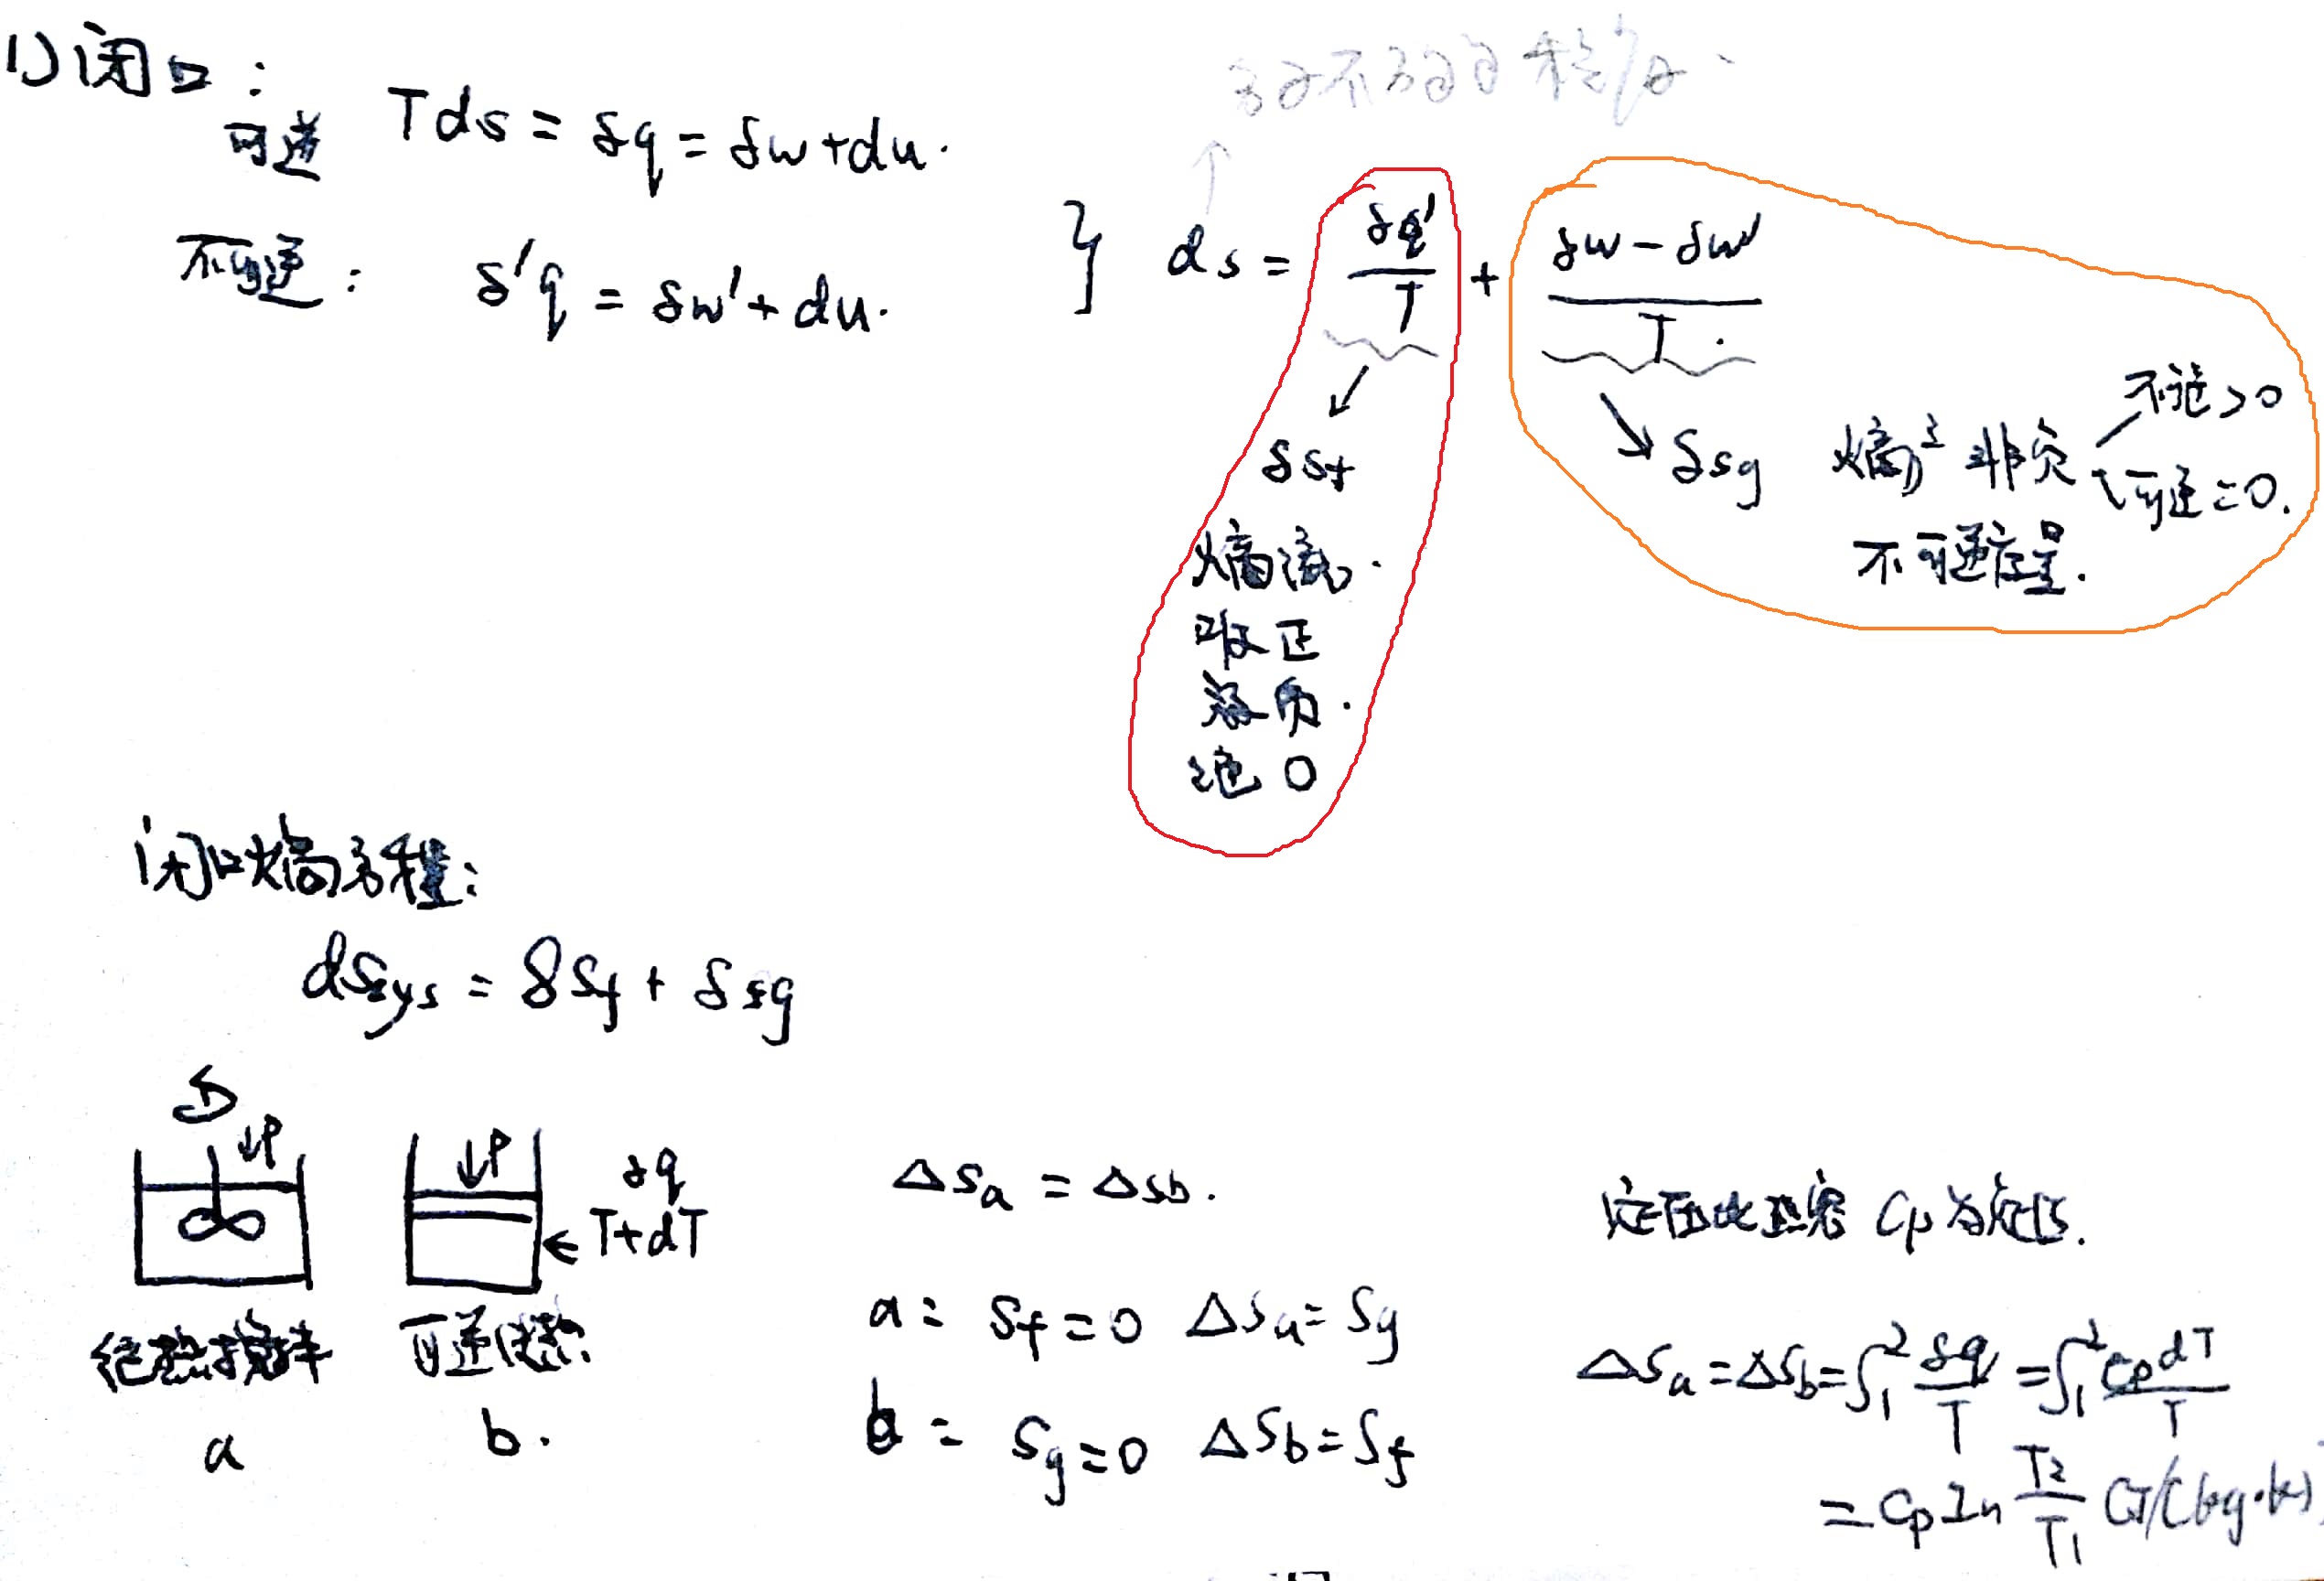 1) 闭口:
可逆 Tds = δq = δw + du.
不可逆: δ'q = δw' + du.
} ds = δq'/T + (δw - δw')/T.
↙ δsf
熵流.
吸正
放负.
绝 0
↘ δsg 熵产 非负 不可逆 > 0
可逆 = 0.
不可逆性量.
闭口熵方程:
dSsys = δSf + δsg
↓P
绝热搅拌
a
↓P
δq
← T+dT
可逆
b.
Δsa = Δsb.
a: Sf = 0 Δsa = Sg
b: Sg = 0 ΔSb = Sf
定压比热容 Cp 为定值.
ΔSa = ΔSb = ∫₁² δq/T = ∫₁² cp dT/T
= Cp ln T2/T1